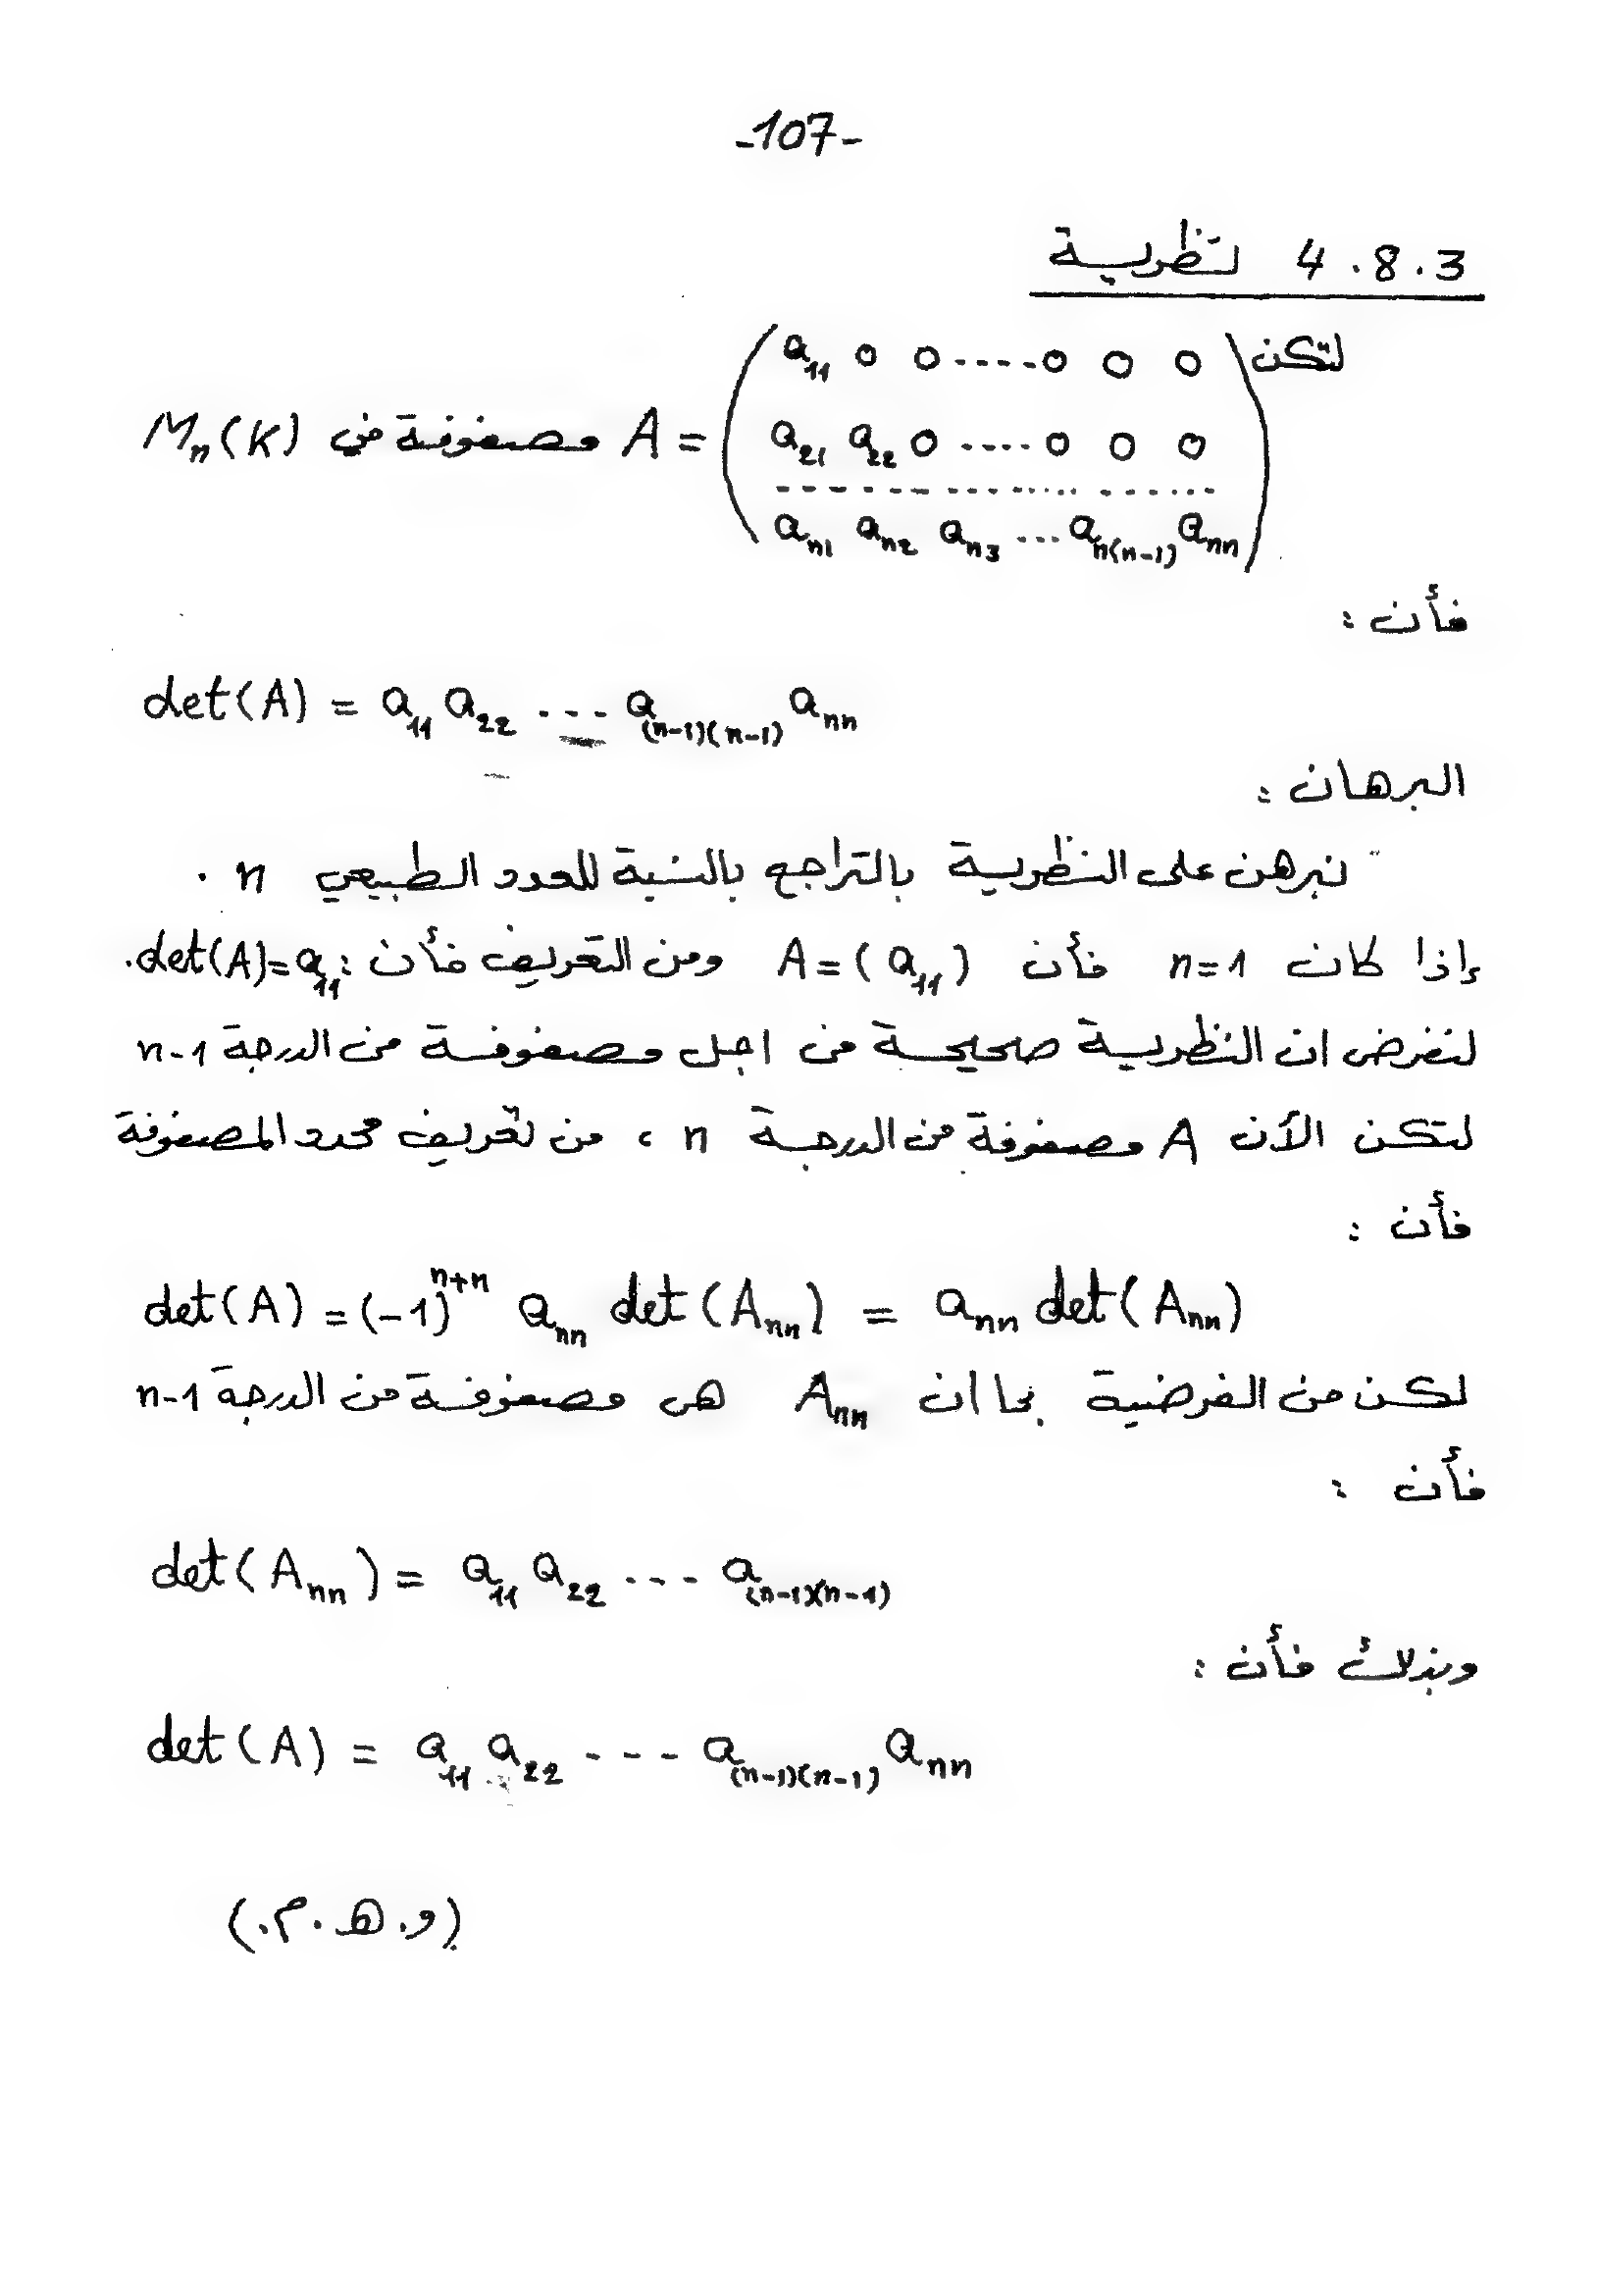 -107-
4.8.3 نظرية
لتكن A = \begin{pmatrix} a_{11} & 0 & 0 & \cdots & 0 & 0 & 0 \\ a_{21} & a_{22} & 0 & \cdots & 0 & 0 & 0 \\ \cdots \\ a_{n1} & a_{n2} & a_{n3} & \cdots & a_{n(n-1)} & a_{nn} \end{pmatrix} مصفوفة في M_n(K)
فأن :
det(A) = a_{11} a_{22} ... a_{(n-1)(n-1)} a_{nn}
البرهان :
نبرهن على النظرية بالتراجع بالنسبة للعدد الطبيعي n .
إذا كان n=1 فأن A=(a_{11}) ومن التعريف فأن : det(A)=a_{11}.
لنفرض ان النظرية صحيحة من اجل مصفوفة من الدرجة n-1
لتكن الآن A مصفوفة من الدرجة n ، من تعريف محدد المصفوفة
فأن :
det(A) = (-1)^{n+n} a_{nn} det(A_{nn}) = a_{nn} det(A_{nn})
لكن من الفرضية بما ان A_{nn} هي مصفوفة من الدرجة n-1
فأن :
det(A_{nn}) = a_{11} a_{22} ... a_{(n-1)(n-1)}
وبذلك فأن :
det(A) = a_{11} a_{22} ... a_{(n-1)(n-1)} a_{nn}
(و.هـ.م.)